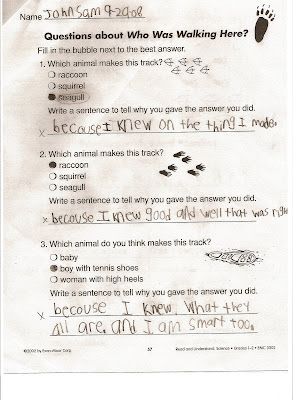 Name JohnSam 9-29-08
Questions about Who Was Walking Here?
Fill in the bubble next to the best answer.
1. Which animal makes this track?
raccoon
squirrel
seagull
Write a sentence to tell why you gave the answer you did.
x becouse I knew on the thing I made.
2. Which animal makes this track?
raccoon
squirrel
seagull
Write a sentence to tell why you gave the answer you did.
x becouse I knew good and well that was right
3. Which animal do you think makes this track?
baby
boy with tennis shoes
woman with high heels
Write a sentence to tell why you gave the answer you did.
x becouse I knew what they
all are, and I am smart too.
©2002 by Evan-Moor Corp. 57 Read and Understand, Science • Grades 1-2 • EMC 3302